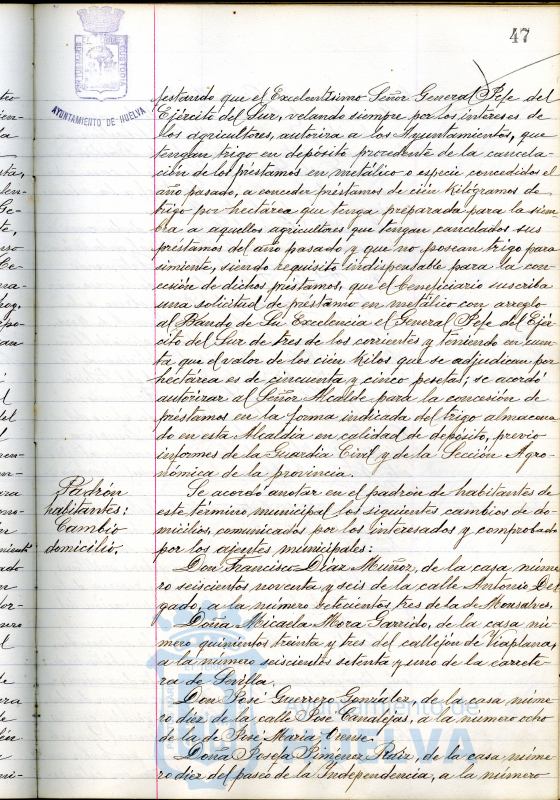 47
AYUNTAMIENTO DE HUELVA
festando que el Excelentísimo Señor General Jefe del
Ejército del Sur, velando siempre por los intereses de
los agricultores, autoriza a los Ayuntamientos, que
tengan trigo en depósito procedente de la cancela
ción de los préstamos en metálico o especie concedidos el
año pasado, a conceder préstamos de cien kilogramos de
trigo por hectárea que tenga preparada para la siem
bra a aquellos agricultores que tengan cancelados sus
préstamos del año pasado y que no posean trigo para
simiente, siendo requisito indispensable para la con
cesión de dichos préstamos, que el beneficiario suscriba
una solicitud de préstamo en metálico con arreglo
al Bando de Su Excelencia el General Jefe del Ejér
cito del Sur de tres de los corrientes y teniendo en cuen
ta que el valor de los cien kilos que se adjudican por
hectárea es de cincuenta y cinco pesetas; se acordó
autorizar al Señor Alcalde para la concesión de
préstamos en la forma indicada del trigo almacena
do en esta Alcaldía en calidad de depósito, previo
informes de la Guardia Civil y de la Sección Agro
nómica de la provincia.
Padrón
habitantes:
Cambio
domicilio.
Se acordó anotar en el padrón de habitantes de
este término municipal los siguientes cambios de do-
micilios, comunicados por los interesados y comprobado
por los agentes municipales:
Don Francisco Díaz Muñoz, de la casa núme
ro seiscientos noventa y seis de la calle Antonio Del
gado, a la número setecientos tres de la de Monsalves.
Doña Micaela Mora Garrido, de la casa nú
mero quinientos treinta y tres del callejón de Viaplana,
a la número seiscientos setenta y uno de la carrete
ra de Sevilla.
Don José Guerrero González, de la casa núme
ro diez de la calle José Canalejas, a la número ocho
de la de José María
Doña Josefa Jiménez Ruiz, de la casa núme
ro diez del paseo de la Independencia, a la número
Ayuntamiento de
HUELVA